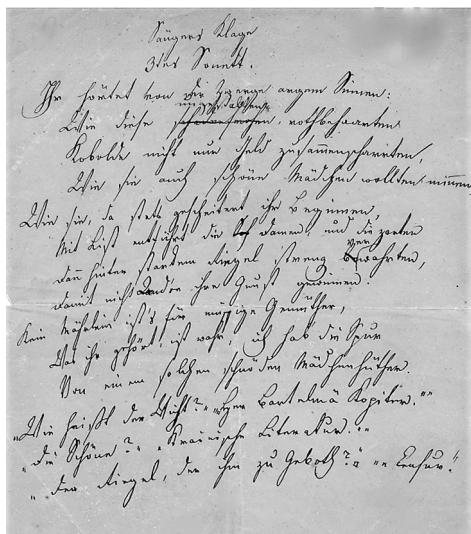 Sängers Klage
3tes Sonett.
Ihr hörtet von der Zwerge argem Sinnen:
mißgestalten
Wie diese rothbehaarten
Kobolde nicht nur Geld zusammenscharrten,
Wie sie auch schöne Mädchen wollten minnen
Wie sie, da stets gescheitert ihr Beginnen,
Mit List entführt die Damen, und die zarten
dann hinter starkem Riegel streng verwahrten,
damit nicht Andre ihre Gunst gewinnen.
Kein Mährlein ist's für müssige Gemüther,
Was ihr gehört, ist wahr, ich hab die Spur
Von einem solchen schnöden Mädchenhüther.
„Wie heißt der Wicht?" „„Herr Bartelmä Kopiter.""
„Die Schöne?" „„Krainische Literatur.""
„Der Riegel, der ihm zu Geboth?" „„Censur."